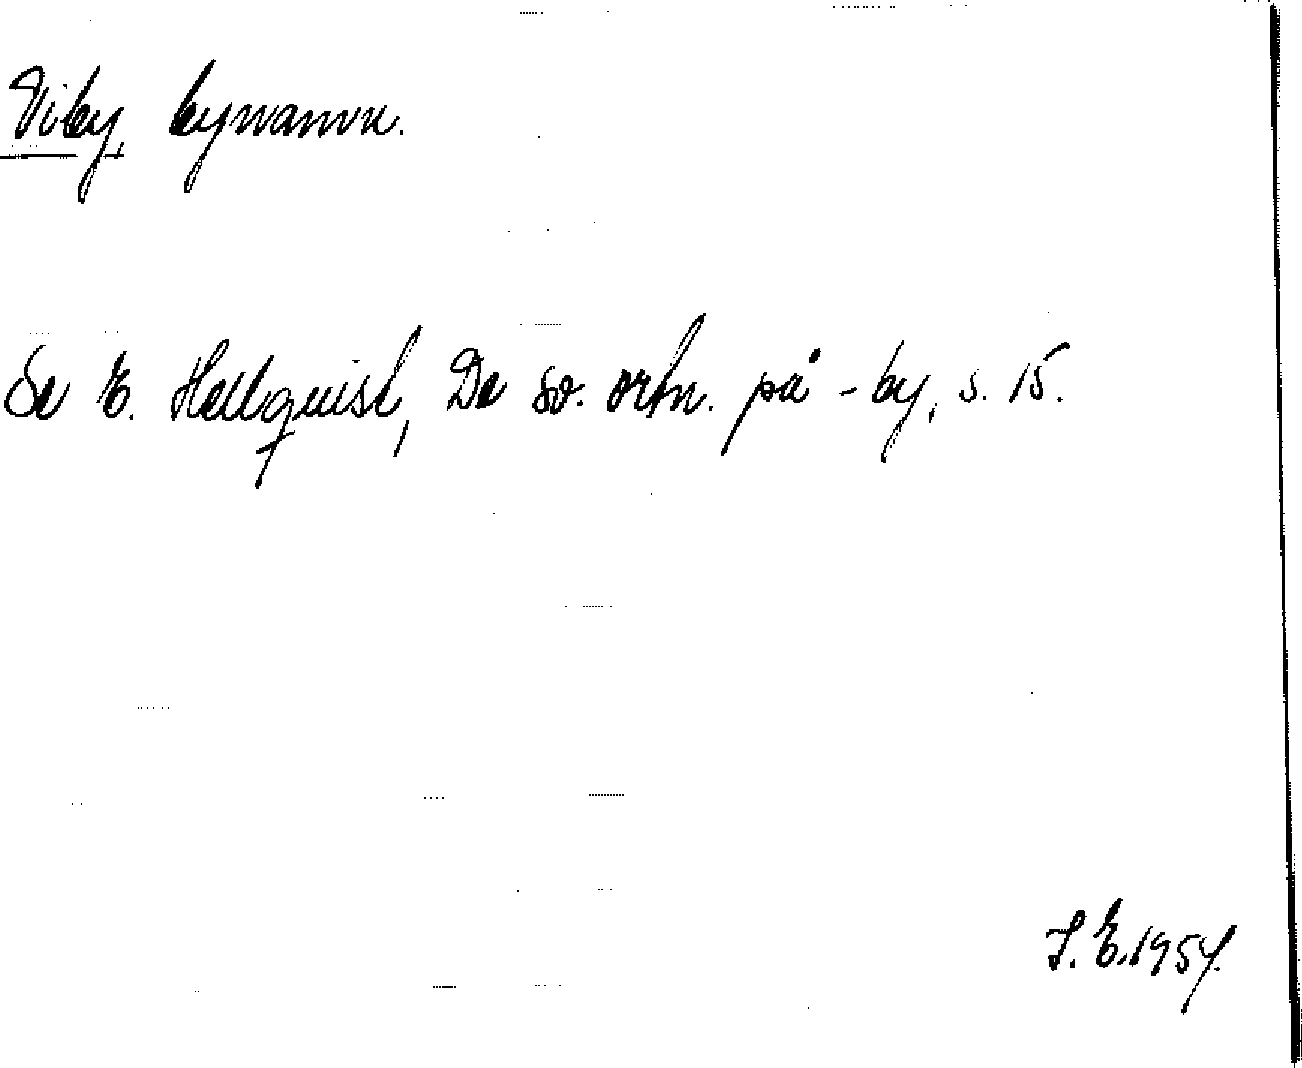 Viby, bynamn.
Se E. Hellquist, De sv. ortn. på -by, s. 15.
I. E. 1954.